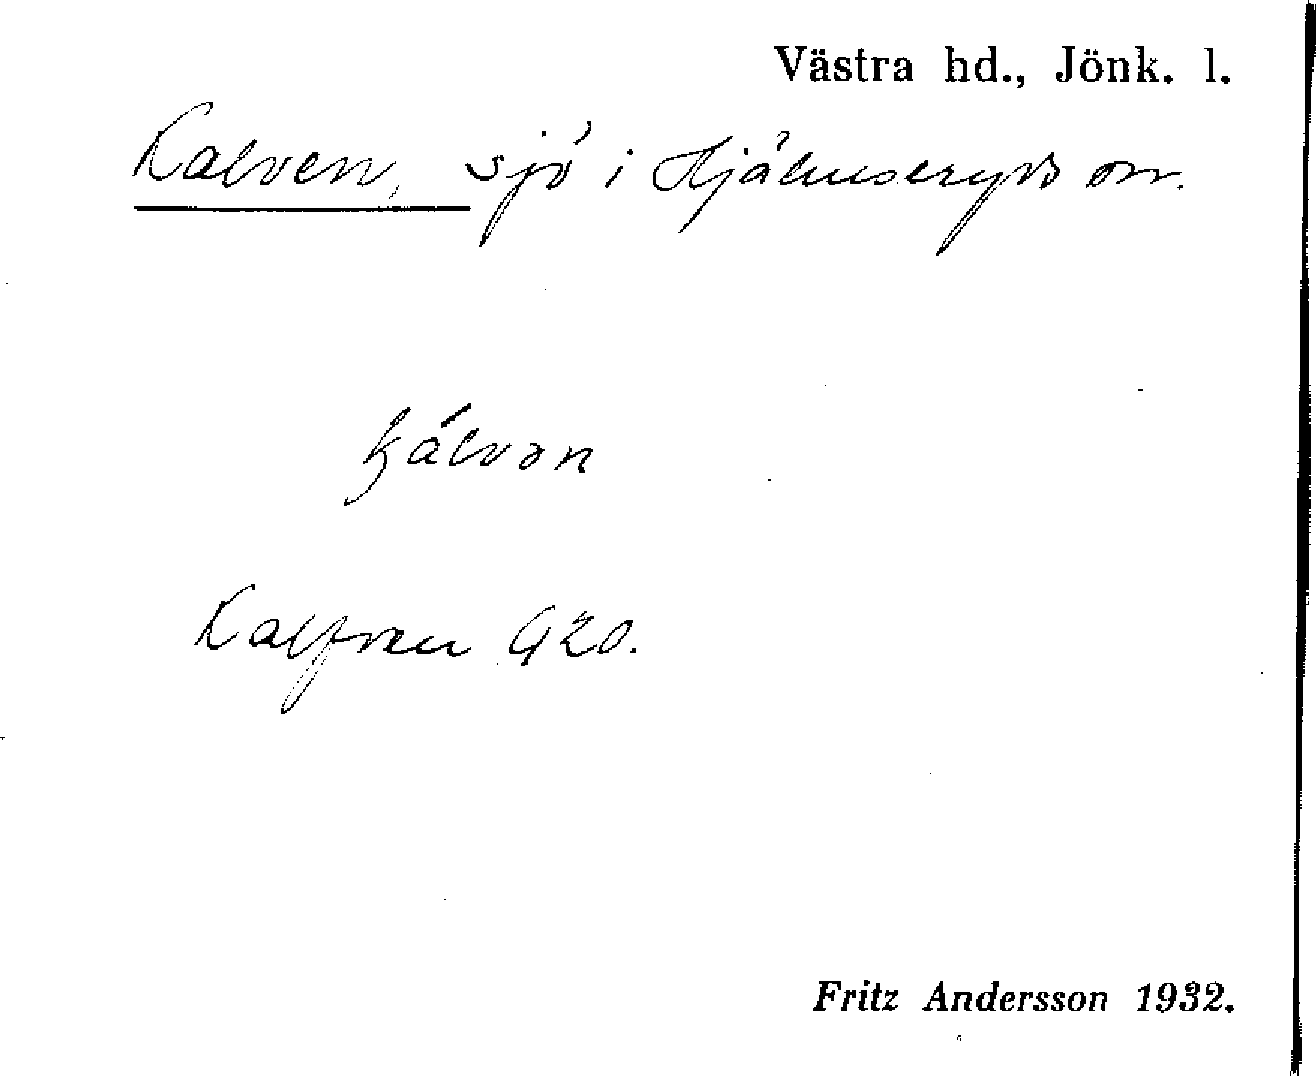 Västra hd., Jönk. l.
Kalven, sjö i Hjälmseryds sn.
kálvən
Kalfven GEO.
Fritz Andersson 1932.